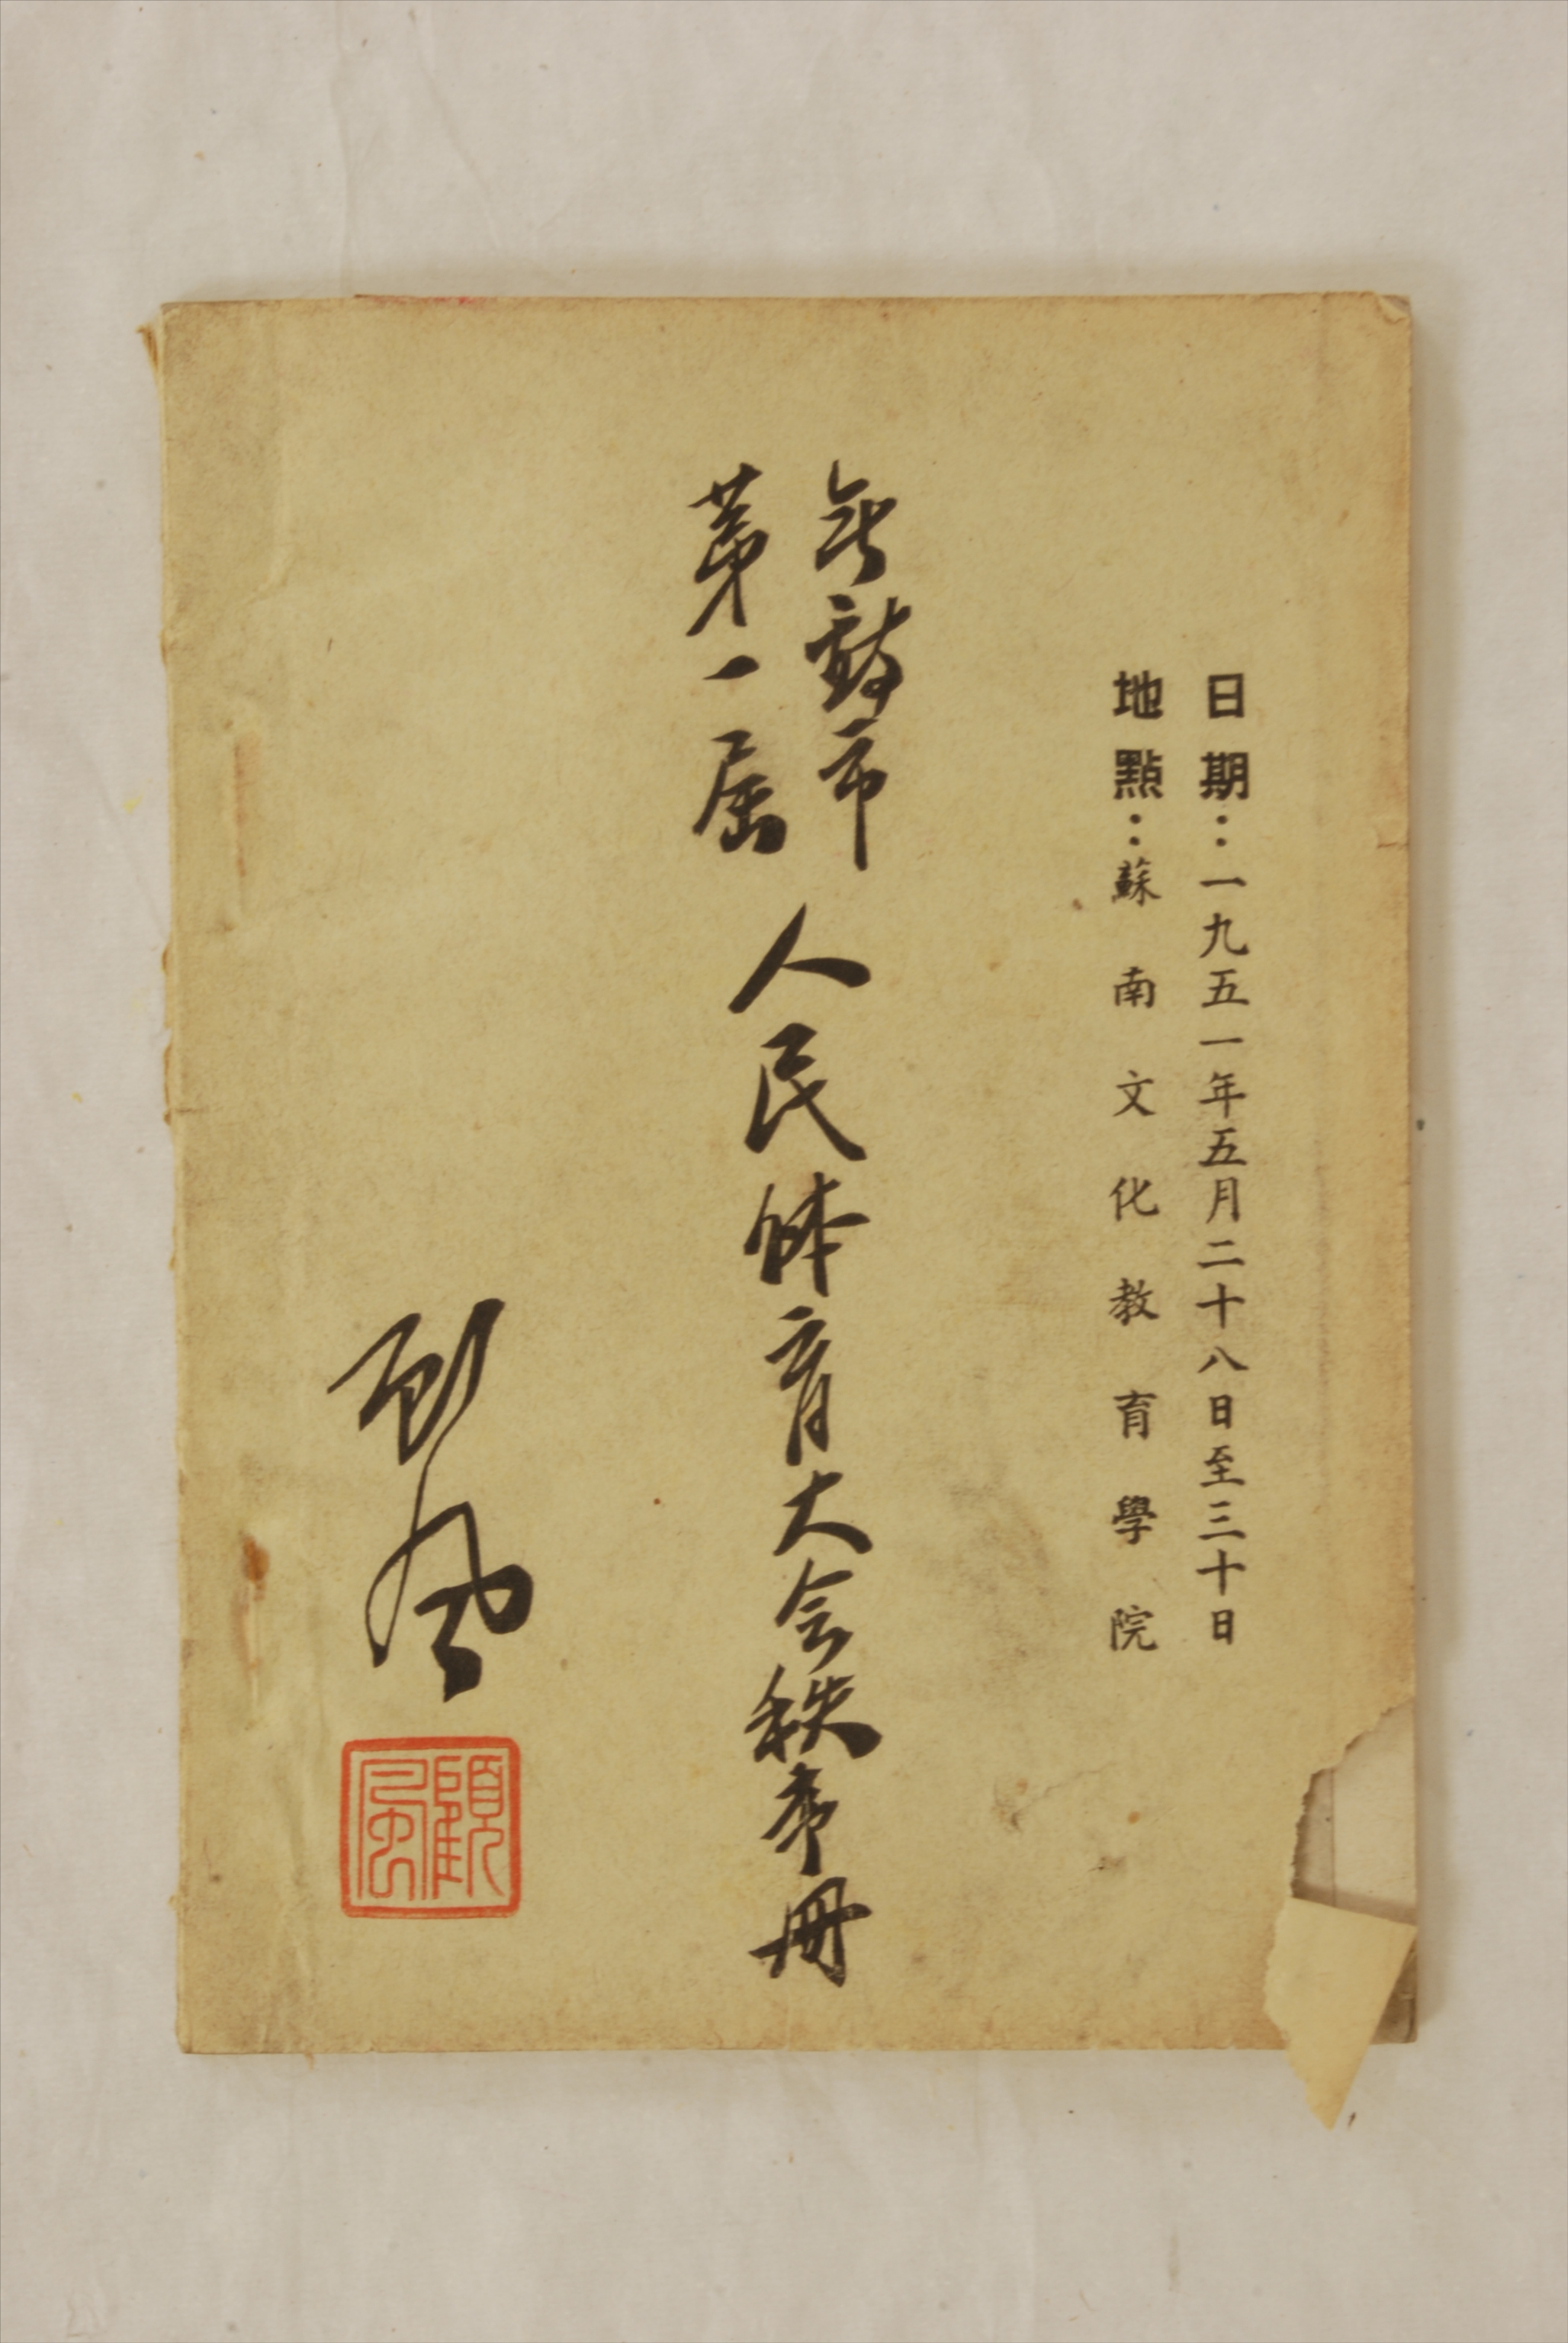 日期：一九五一年五月二十八日至三十日
地點：蘇南文化教育學院
無錫市
第一屆
人民体育大会秩序冊
顧風
顧風